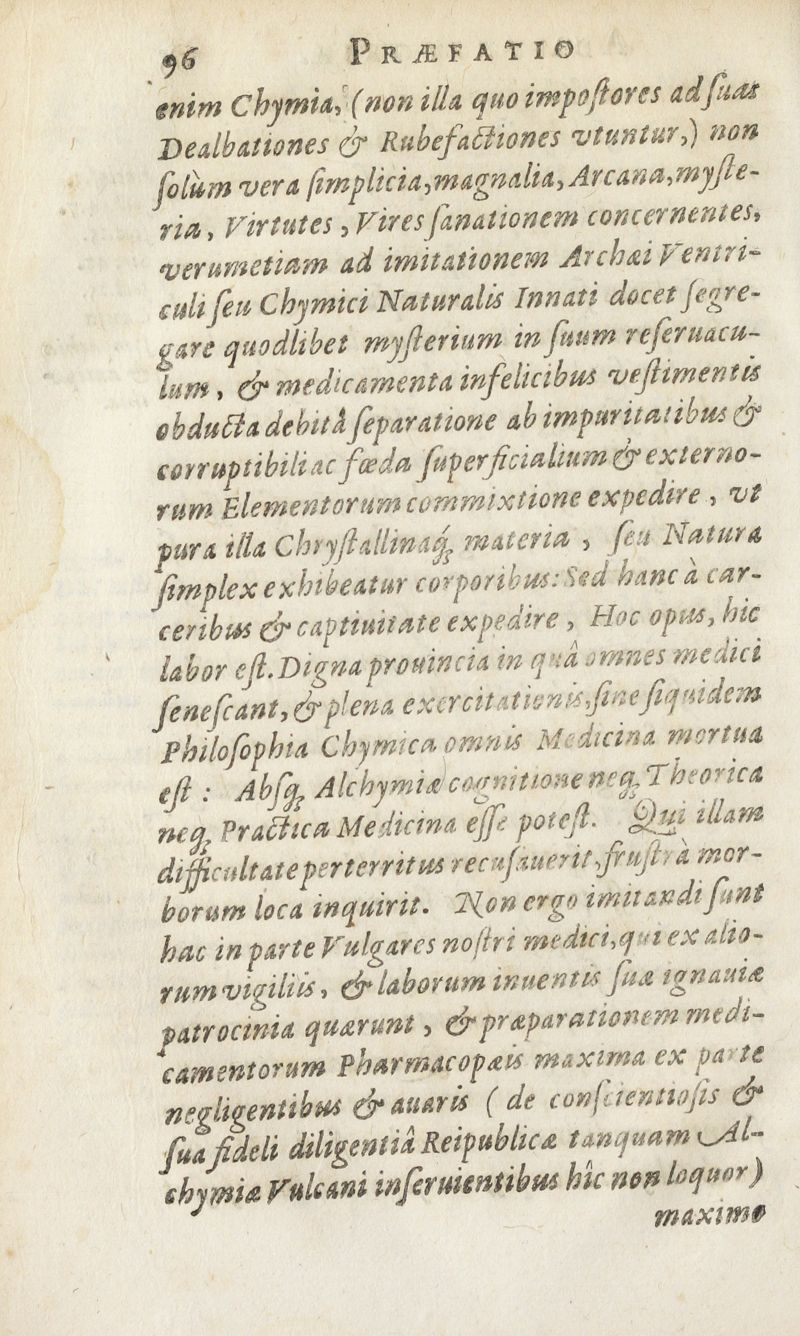 96 PRÆFATIO
enim Chymia, (non illa quo impoſtores ad ſuas
Dealbationes & Rubefactiones vtuntur,) non
ſolùm vera ſimplicia, magnalia, Arcana, myſte-
ria, Virtutes, Vires ſanationem concernentes,
verumetiam ad imitationem Archæi Ventri-
culi ſeu Chymici Naturalis Innati docet ſegre-
gare quodlibet myſterium in ſuum reſeruacu-
lum, & medicamenta infelicibus veſtimentis
obducta debitâ ſeparatione ab impuritatibus &
corruptibili ac fœda ſuperficialium & externo-
rum Elementorum commixtione expedire, vt
pura illa Chryſtallinaq́; materia, ſeu Natura
ſimplex exhibeatur corporibus: Sed hanc à car-
ceribus & captiuitate expedire, Hoc opus, hic
labor eſt. Digna prouincia in quâ omnes medici
ſeneſcant, & plena exercitationis, ſine ſiquidem
Philoſophia Chymica omnis Medicina mortua
eſt: Abſq; Alchymiæ cognitione neq; Theorica
neq; Practica Medicina eſſe poteſt. Qui illam
difficultate perterritus recuſauerit, fruſtrà mor-
borum loca inquirit. Non ergo imitandi ſunt
hac in parte Vulgares noſtri medici, qui ex alio-
rum vigiliis, & laborum inuentis ſuæ ignauiæ
patrocinia quærunt, & præparationem medi-
camentorum Pharmacopæis maxima ex parte
negligentibus & auaris (de conſcientioſis &
ſua fideli diligentiâ Reipublicæ tanquam Al-
chymiæ Vulcani inſeruientibus hîc non loquor)
maximo